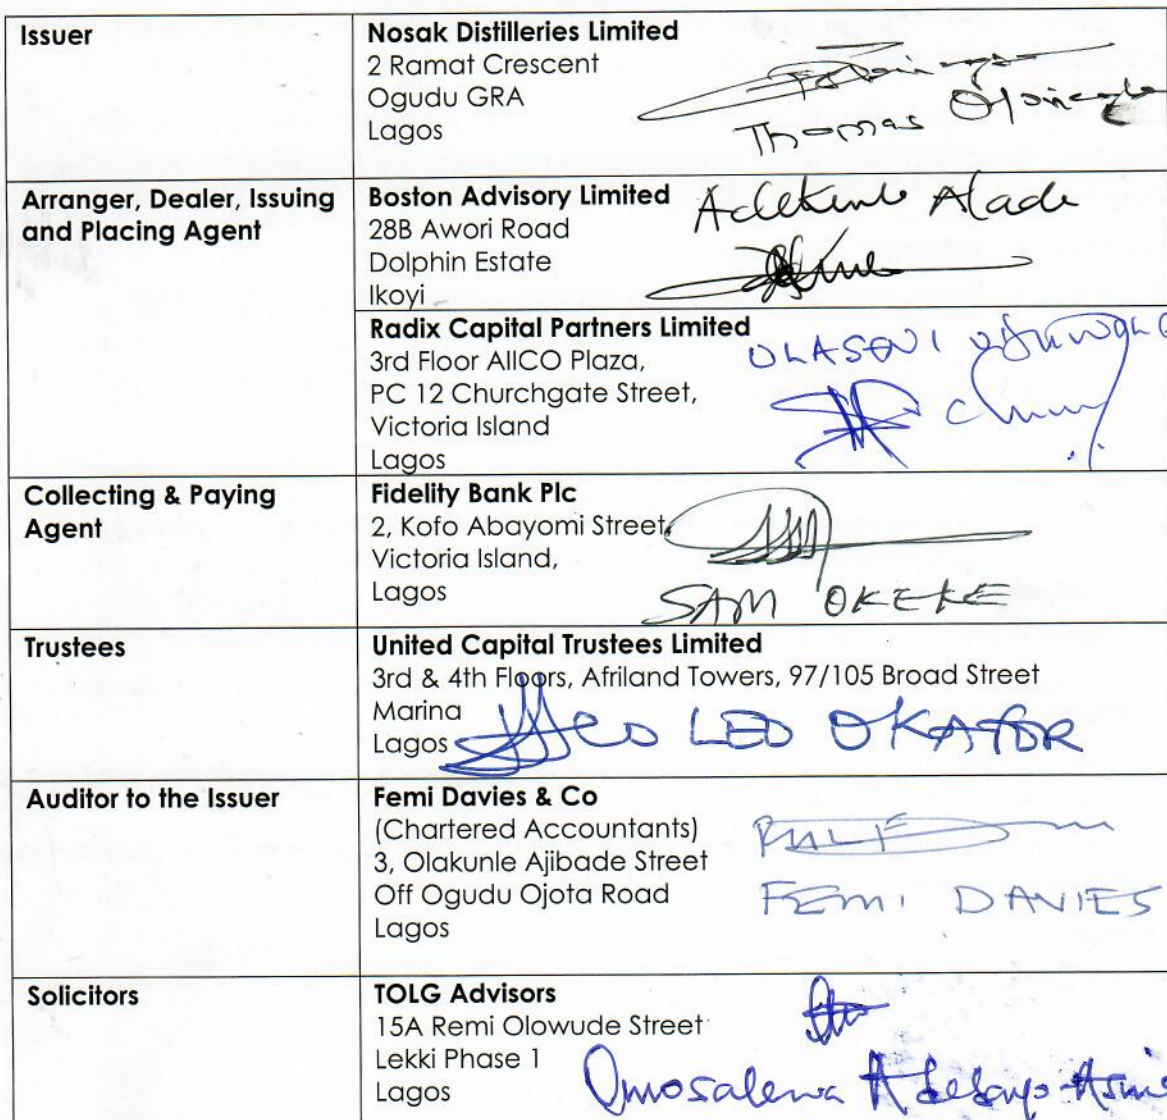 Issuer
Nosak Distilleries Limited
2 Ramat Crescent
Ogudu GRA
Lagos
Thomas
Arranger, Dealer, Issuing
and Placing Agent
Boston Advisory Limited
28B Awori Road
Dolphin Estate
Ikoyi
Adekunle Alade
Radix Capital Partners Limited
3rd Floor AIICO Plaza,
PC 12 Churchgate Street,
Victoria Island
Lagos
Collecting & Paying
Agent
Fidelity Bank Plc
2, Kofo Abayomi Street,
Victoria Island,
Lagos
SAM OKEKE
Trustees
United Capital Trustees Limited
3rd & 4th Floors, Afriland Towers, 97/105 Broad Street
Marina
Lagos
LEO OKAFOR
Auditor to the Issuer
Femi Davies & Co
(Chartered Accountants)
3, Olakunle Ajibade Street
Off Ogudu Ojota Road
Lagos
FEMI DAVIES
Solicitors
TOLG Advisors
15A Remi Olowude Street
Lekki Phase 1
Lagos
Omosalewa Adebayo